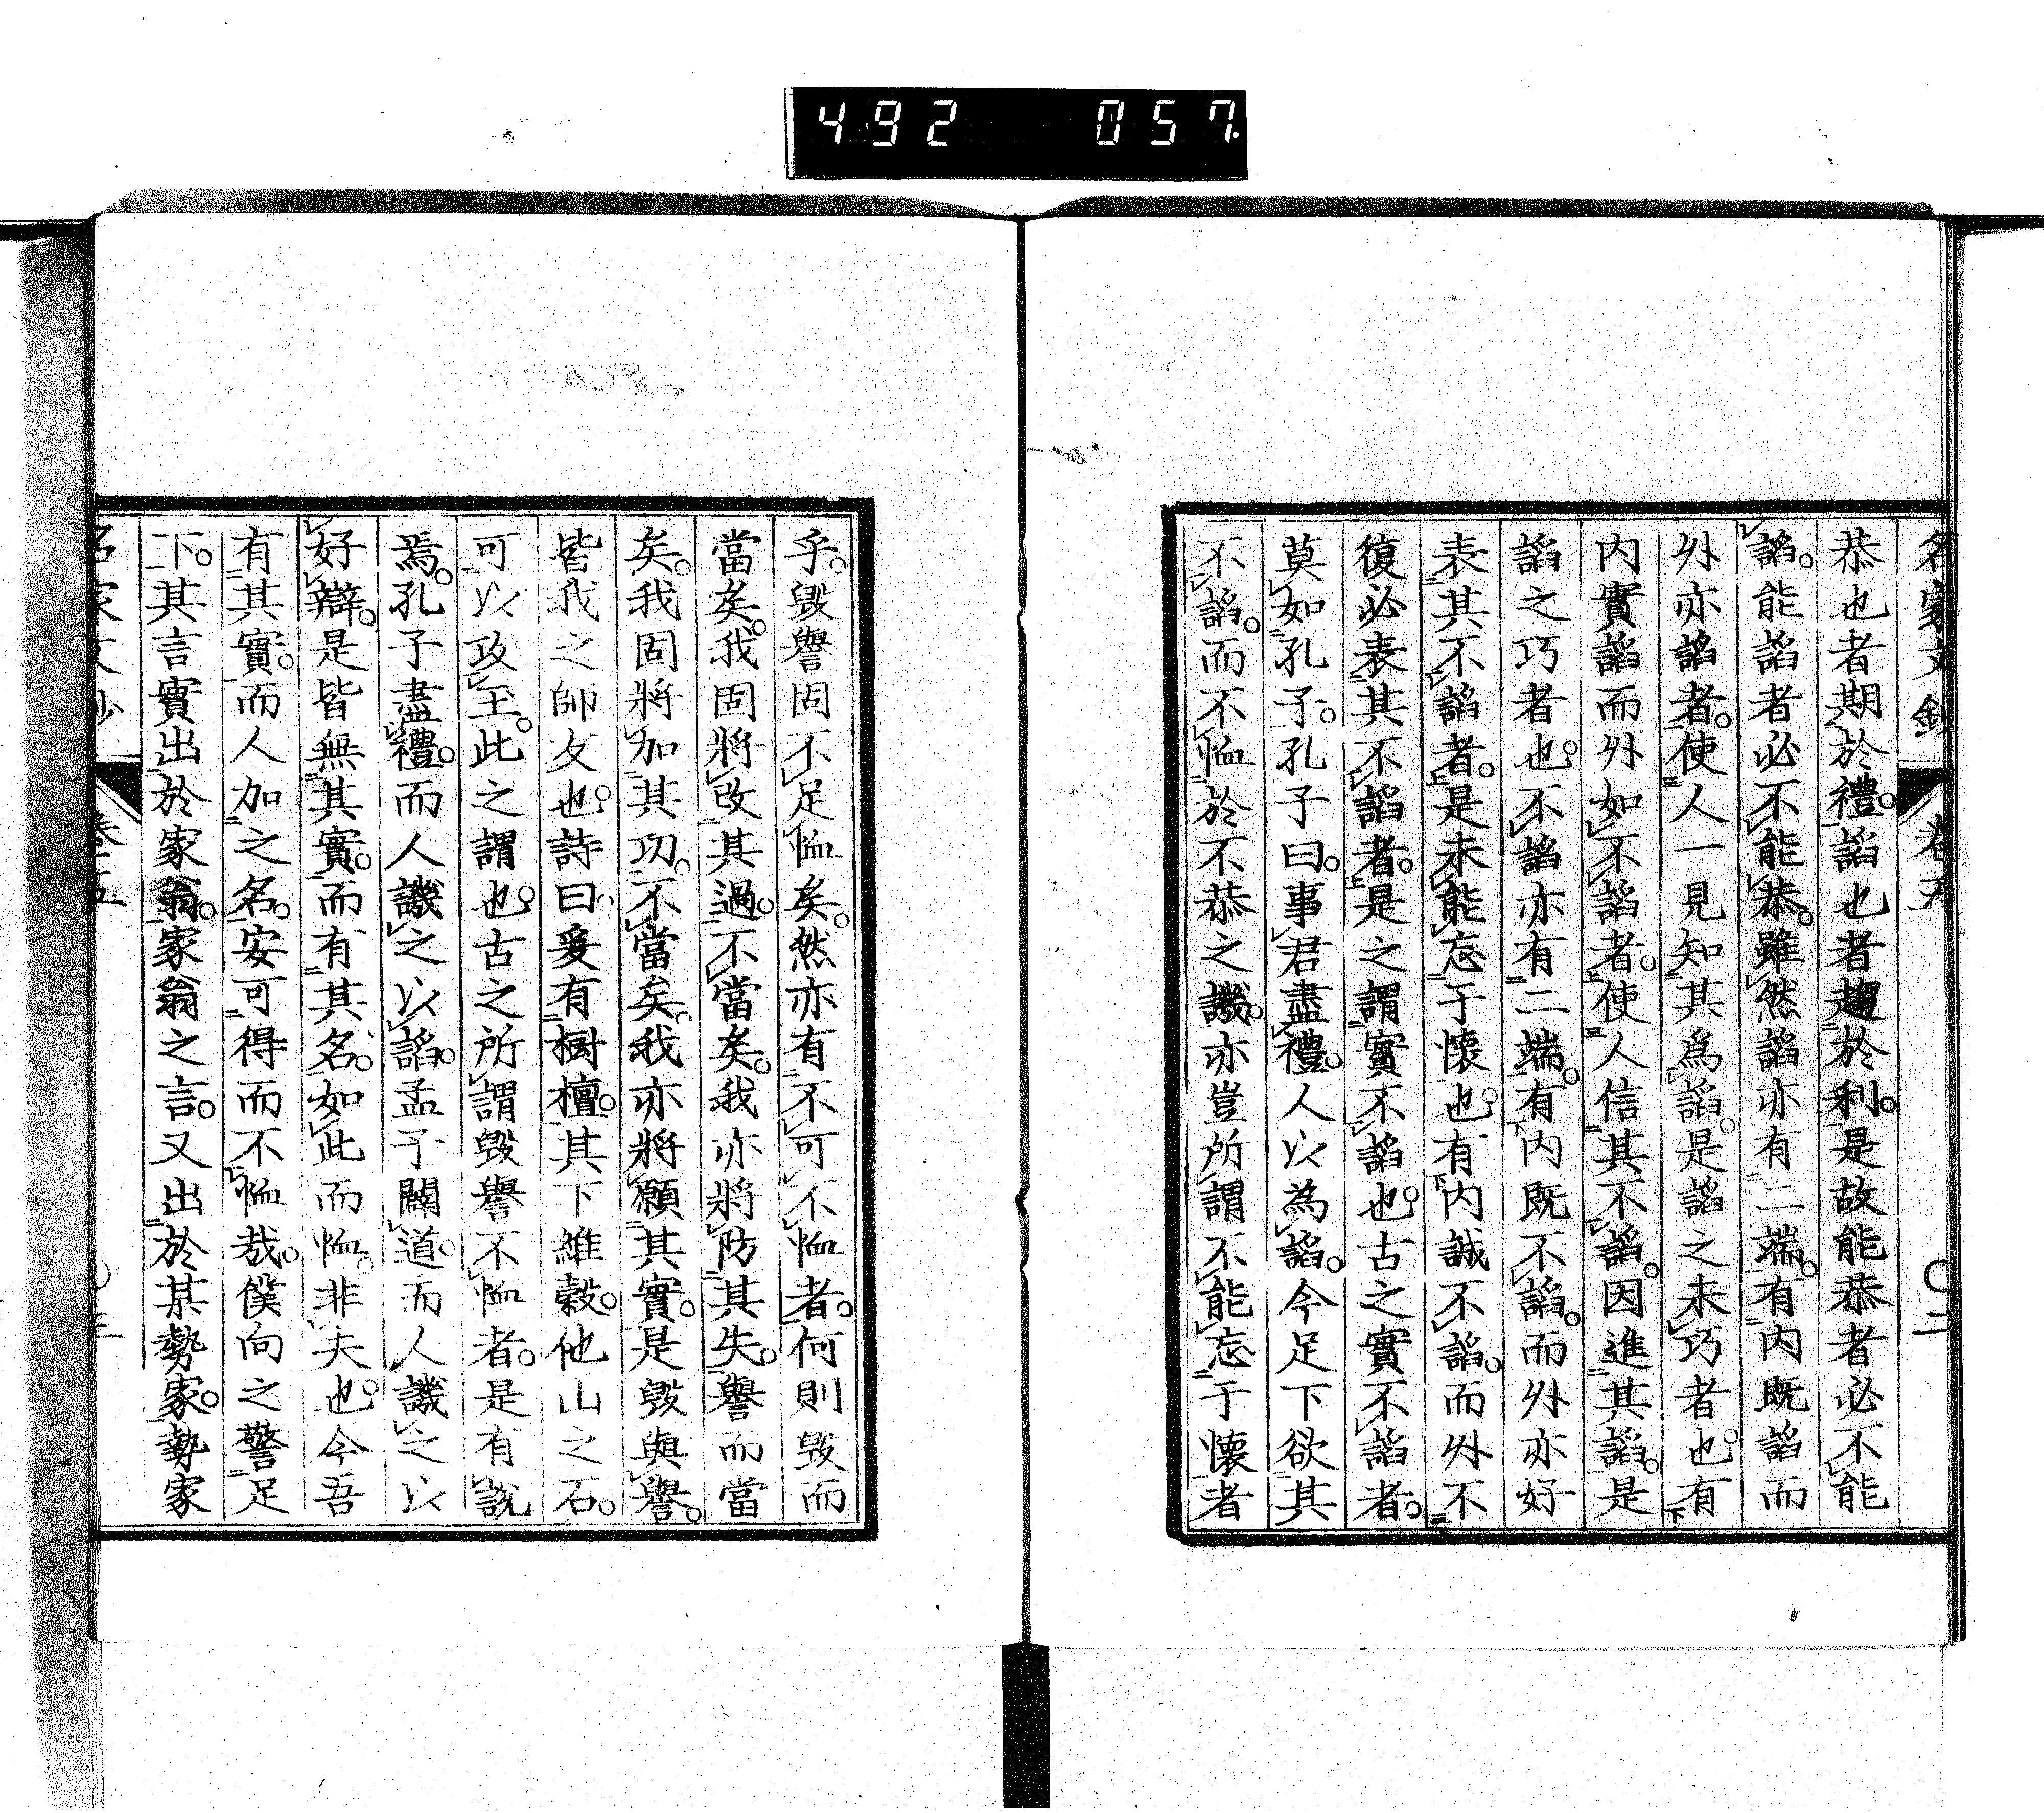 492 057
名家文鈔 卷五 〇二
恭也者期於禮。諂也者趨於利。是故能恭者必不能
諂。能諂者必不能恭。雖然諂亦有二端。有內既諂而
外亦諂者。使人一見知其爲諂。是諂之未巧者也。有
內實諂而外如不諂者。使人信其不諂。因進其諂。是
諂之巧者也。不諂亦有二端。有內既不諂。而外亦好
表其不諂者。是未能忘于懷也。有內誠不諂。而外不
復必表其不諂者。是之謂實不諂也。古之實不諂者。
莫如孔子。孔子曰。事君盡禮。人以為諂。今足下欲其
不諂。而不恤於不恭之譏。亦豈所謂不能忘于懷者
乎。毀譽固不足恤矣。然亦有不可不恤者。何則毀而
當矣。我固將改其過。不當矣。我亦將防其失。譽而當
矣。我固將加其功。不當矣。我亦將願其實。是毀與譽。
皆我之師友也。詩曰爰有樹檀。其下維榖。他山之石。
可以攻玉。此之謂也。古之所謂毀譽不恤者。是有說
焉。孔子盡禮。而人譏之以諂。孟子闢道。而人譏之以
好辯。是皆無其實。而有其名。如此而恤。非夫也。今吾
有其實。而人加之名。安可得而不恤哉。僕向之警足
下。其言實出於家翁。家翁之言。又出於某勢家。勢家
名家文鈔 卷五 〇三